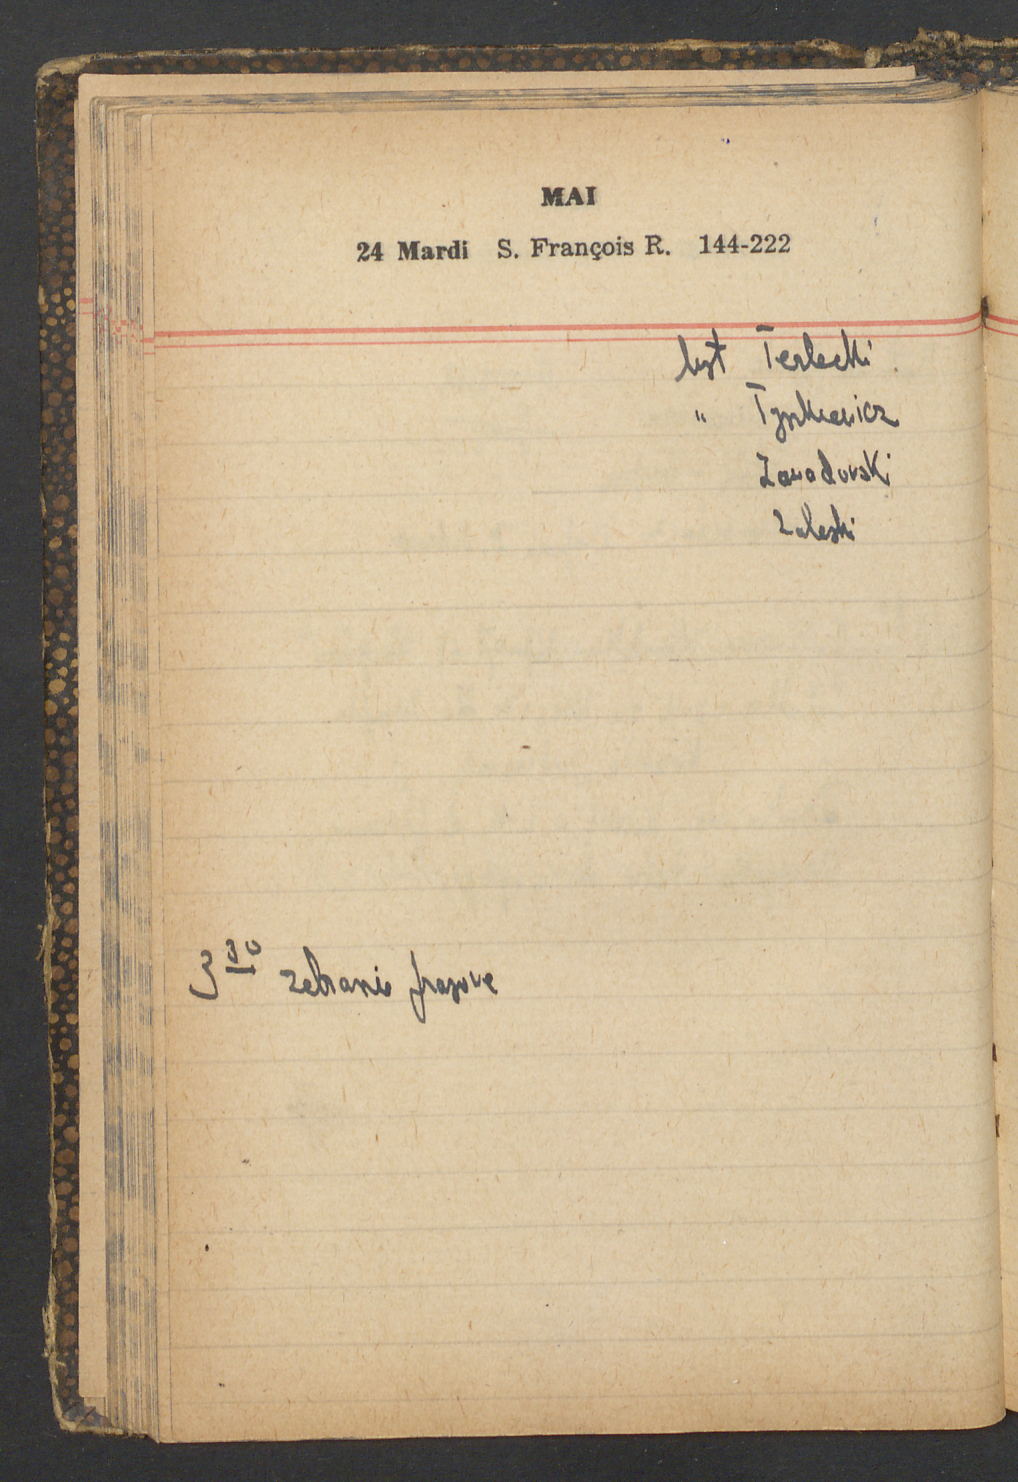 MAI
24 Mardi S. François R. 144-222
list Terlecki
" Tyszkiewicz
Zawadowski
Zaleski
3 30 zebranie prasowe